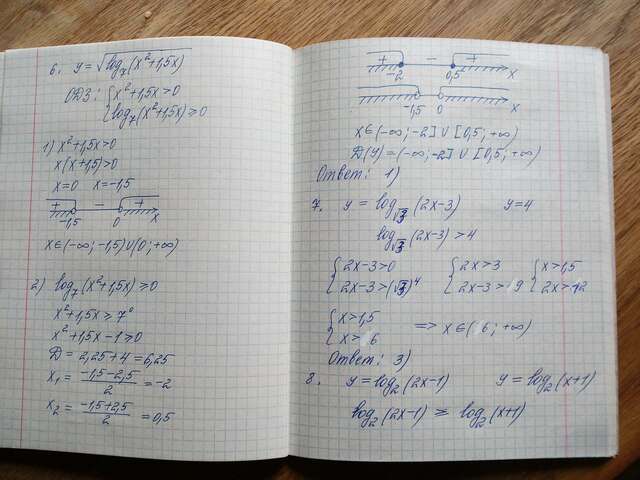 6. y=√log₇(x²+1,5x)
ОДЗ: { x²+1,5x>0
log₇(x²+1,5x)≥0
1) x²+1,5x>0
x(x+1,5)>0
x=0 x=-1,5
+ - +
-1,5 0 x
x∈(-∞;-1,5)∪(0;+∞)
2) log₇(x²+1,5x)≥0
x²+1,5x≥7⁰
x²+1,5x-1≥0
D=2,25+4=6,25
x₁=(-1,5-2,5)/2=-2
x₂=(-1,5+2,5)/2=0,5
+ - +
-2 0,5 x
-1,5 0 x
x∈(-∞;-2]∪[0,5;+∞)
D(y)=(-∞;-2]∪[0,5;+∞)
Ответ: 1)
7. y=log_√3(2x-3) y=4
log_√3(2x-3)>4
{ 2x-3>0 { 2x>3 { x>1,5
2x-3>(√3)⁴ 2x-3>9 2x>12
{ x>1,5
x>6 => x∈(6;+∞)
Ответ: 3)
8. y=log₂(2x-1) y=log₂(x+1)
log₂(2x-1) = log₂(x+1)